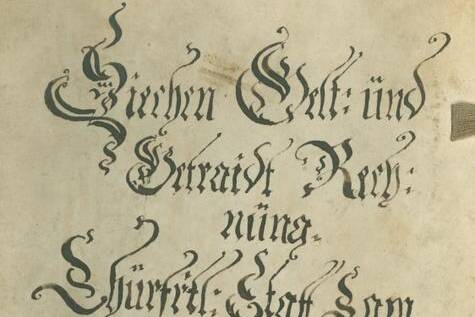 Siechen Gelt: ünd
Getraidt Rech:
nüng.
Chürfrtl: Statt Cam